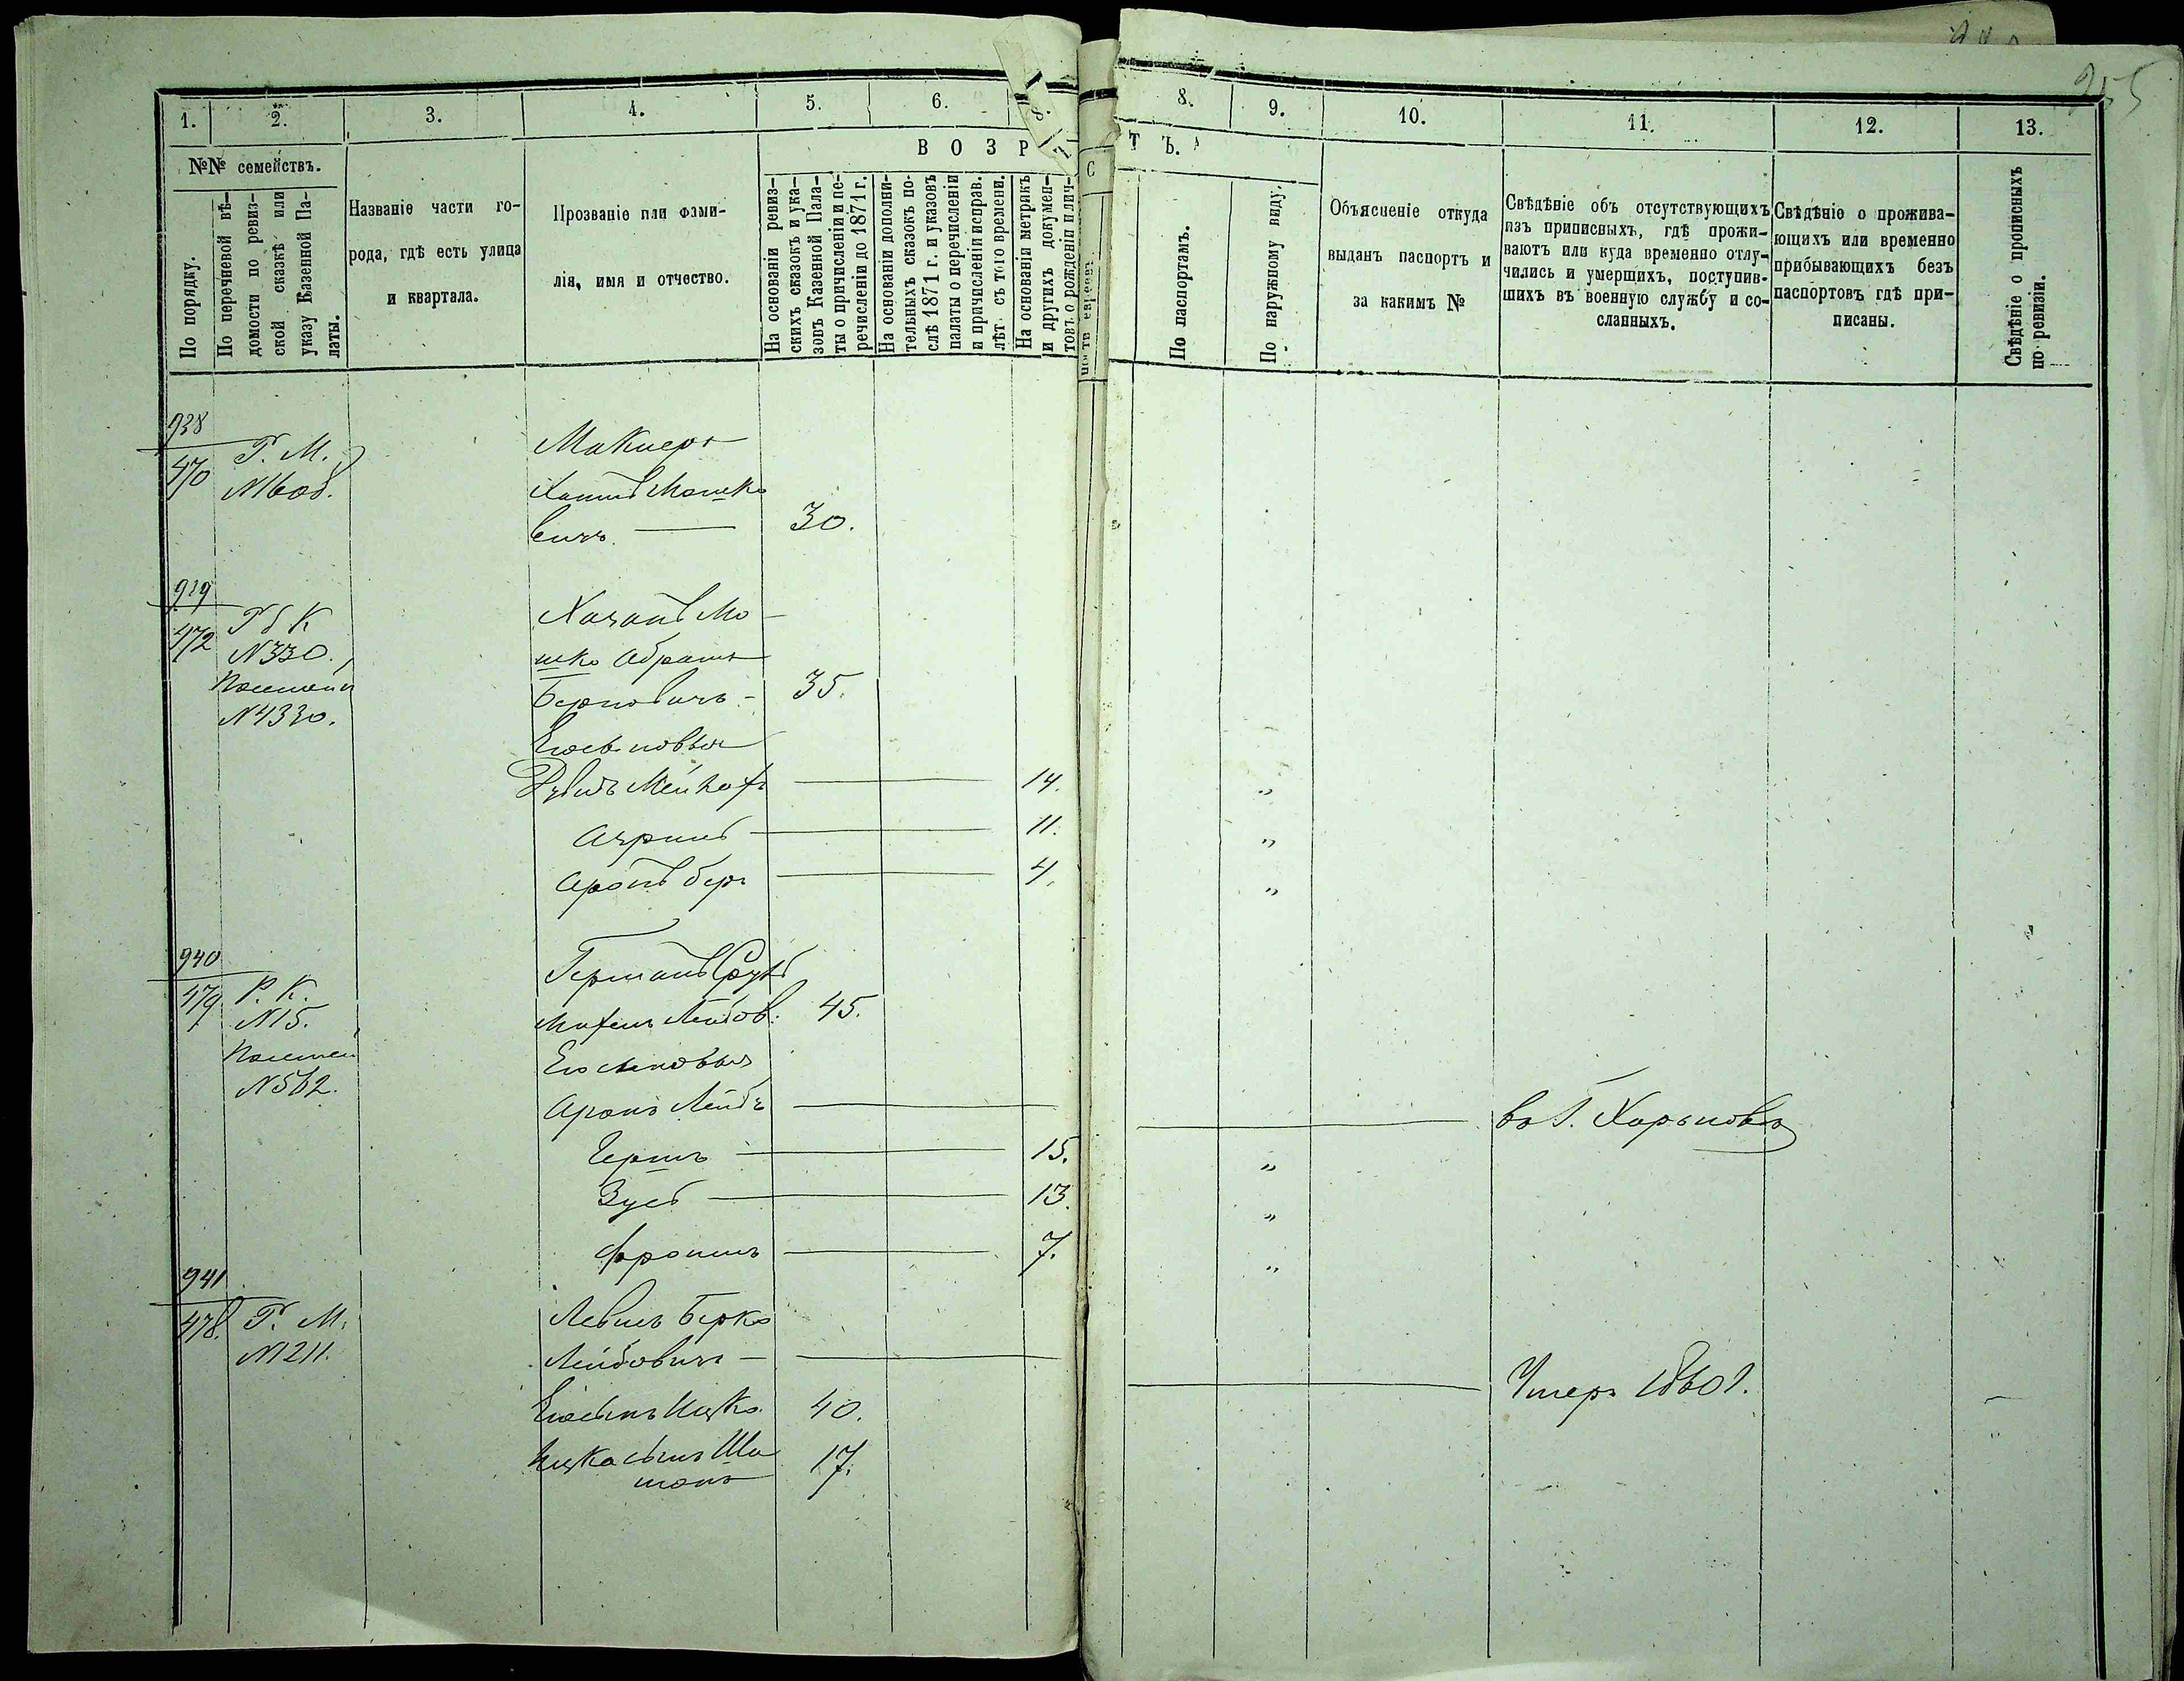 255
1. 2. 3. 4. 5. 6. 8. 9. 10. 11. 12. 13.
№№ семействъ.
По порядку.
По перечневой вѣ-
домости по ревиз-
ской сказкѣ или
указу Казенной Па-
латы.
Названіе части го-
рода, гдѣ есть улица
и квартала.
Прозваніе или фами-
лія, имя и отчество.
В О З Р
Т Ъ.
На основаніи ревиз-
скихъ сказокъ и ука-
зовъ Казенной Пала-
ты о причисленіи и пе-
речисленіи до 1871 г.
На основаніи дополни-
тельныхъ сказокъ по-
слѣ 1871 г. и указовъ
палаты о перечисленіи
и причисленіи исправ.
лѣт съ того времени.
На основаніи метрикъ
и другихъ докумен-
товъ о рожденіи и лич-
По паспортамъ.
По наружному виду.
Объясненіе откуда
выданъ паспортъ и
за какимъ №
Свѣдѣніе объ отсутствующихъ
изъ приписныхъ, гдѣ прожи-
ваютъ или куда временно отлу-
чились и умершихъ, поступив-
шихъ въ военную службу и со-
сланныхъ.
Свѣдѣніе о прожива-
ющихъ или временно
прибывающихъ безъ
паспортовъ гдѣ при-
писаны.
Свѣдѣніе о прописныхъ
по ревизіи.
938
470 Р. М.
Мошко
вичъ — 30.
939
472 Р б К Хазанъ Мо-
N330. шко Абрамъ
Берковичъ - 35.
N4330.
Его сыновья
14. „
11. „
Аронъ Беръ 4. „
940
Германъ
479. Р. К. Лейбов: 45.
N15.
Его сыновья
N562.
Аронъ Лейбъ — въ г. Харьковѣ
Гершъ 15. „
Зусъ 13. „
Фроимъ 7. „
941
478. Р. М. Левинъ Берко
N1211. Лейбовичъ — Умеръ 1860 г.
Его сынъ Ицко 40.
Ицка сынъ Шо 17.
ломъ